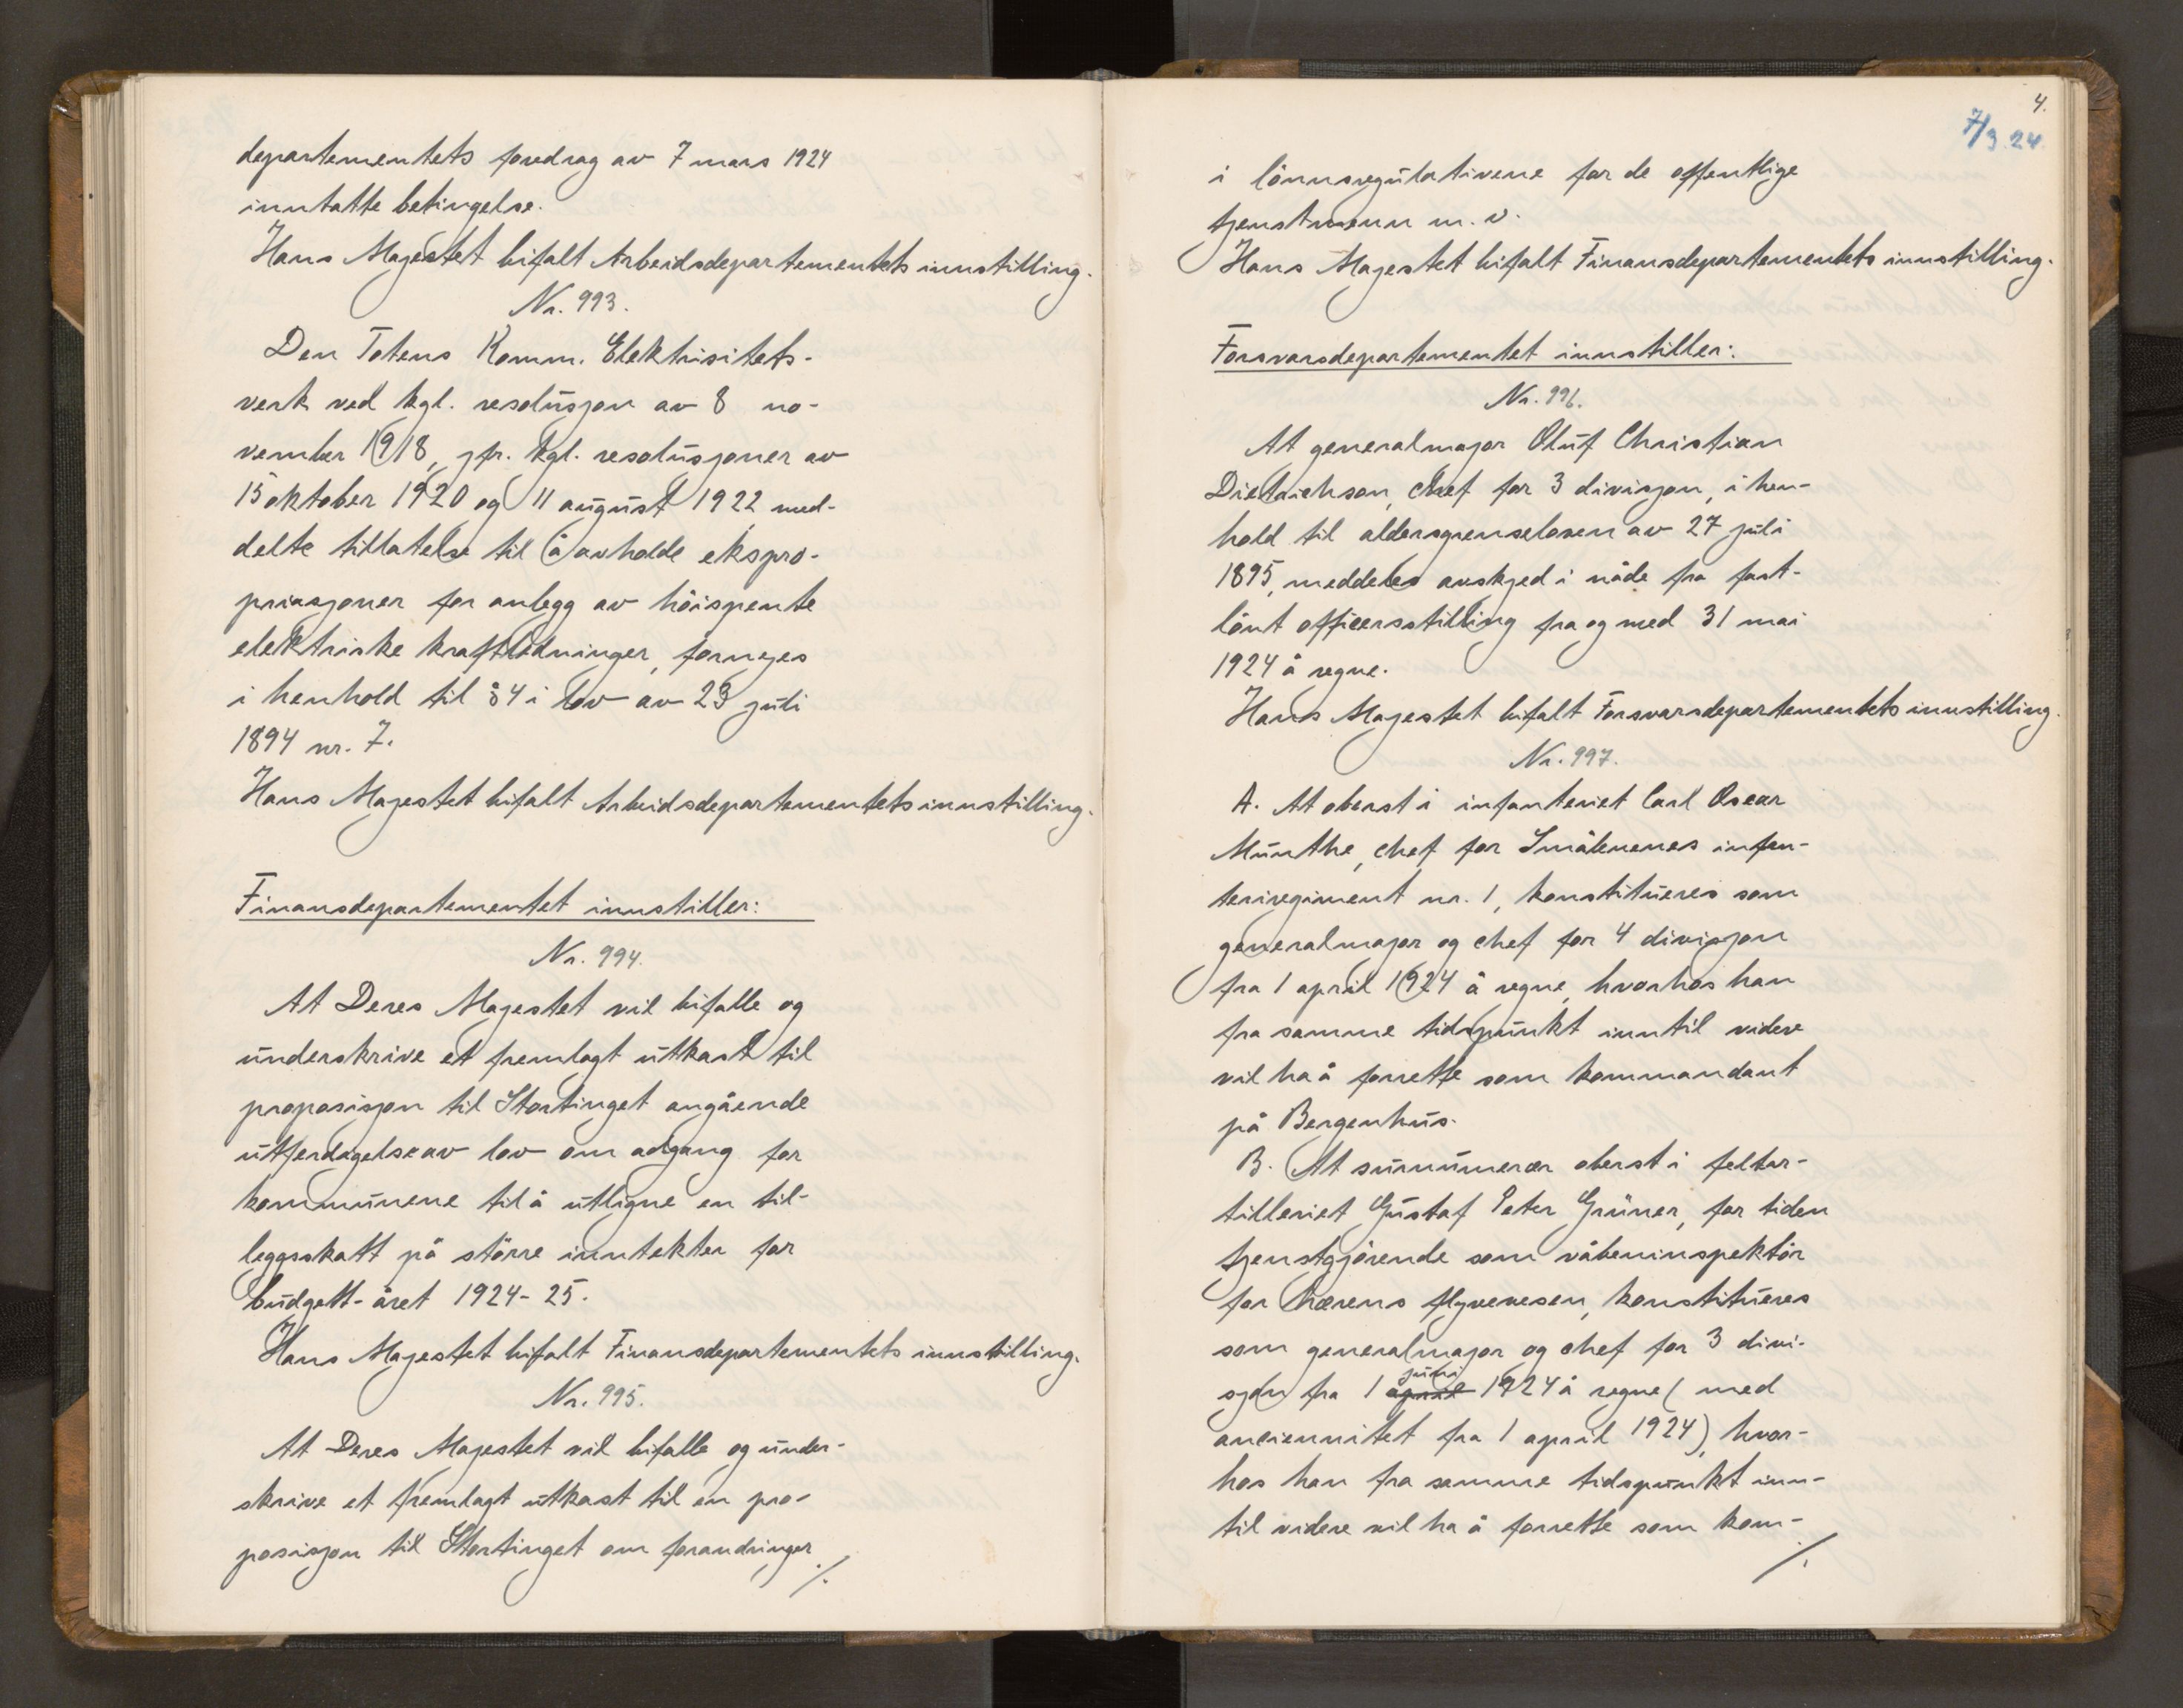 departementets foredrag av 7 mars 1924
inntatte betingelse.
Hans Majestet bifalt Arbeidsdepartementets innstilling.
Nr. 993.
Den Totens Komm. Elektrisitets-
verk ved kgl. resolusjon av 8 no-
vember 1918, jfr. kgl. resolusjoner av
15 oktober 1920 og 11 august 1922, med-
delte tillatelse til å avholde ekspro-
priasjoner for anlegg av höispente
elektriske kraftledninger, fornyes
i henhold til § 4 i lov av 23 juli
1894 nr. 7.
Hans Majestet bifalt Arbeidsdepartementets innstilling.
Finansdepartementet innstiller:
Nr. 994.
At Deres Majestet vil bifalle og
underskrive et fremlagt utkast til
proposisjon til Stortinget angående
utferdigelse av lov om adgang for
kommunene til å utligne en til-
leggsskatt på större inntekter for
budgett-året 1924-25.
Hans Majestet bifalt Finansdepartementets innstilling.
Nr. 995.
At Deres Majestet vil bifalle og under-
skrive et fremlagt utkast til en pro-
posisjon til Stortinget om forandringer
./.
4.
7/3.24
i lönnsregulativene for de offentlige
tjenstmenn m. v.
Hans Majestet bifalt Finansdepartementets innstilling.
Forsvarsdepartementet innstiller:
Nr. 996.
At generalmajor Oluf Christian
Dietrichson, chef for 3 divisjon, i hen-
hold til aldersgrenseloven av 27 juli
1895, meddeles avskjed i nåde fra fast-
lönt officersstilling fra og med 31 mai
1924 å regne.
Hans Majestet bifalt Forsvarsdepartementets innstilling.
Nr. 997.
A. At oberst i infanteriet Carl Oscar
Munthe, chef for Smålenenes infan-
teriregiment nr. 1, konstitueres som
generalmajor og chef for 4 divisjon
fra 1 april 1924 å regne, hvorhos han
fra samme tidspunkt inntil videre
vil ha å forrette som kommandant
på Bergenhus.
B. At surnumerær oberst i feltar-
tilleriet Gustaf Peter Grüner, for tiden
tjenstgjörende som våbeninspektör
for hærens flyvevesen, konstitueres
som generalmajor og chef for 3 divi-
juni
sjon fra 1 april 1924 å regne (med
anciennitet fra 1 april 1924), hvor-
hos han fra samme tidspunkt inn-
til videre vil ha å forrette som kom-
./.